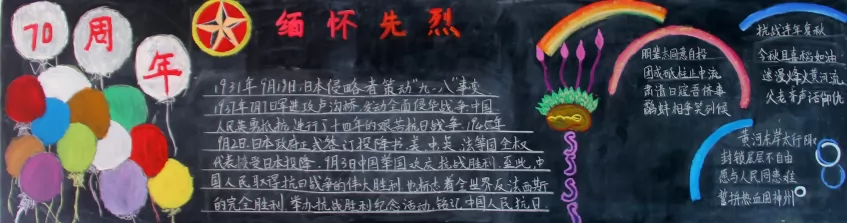 70周年
缅怀先烈
1931年9月18日,日本侵略者策动"九·八"事变
1937年7月7日军进攻卢沟桥,发动全面侵华战争,中国
人民英勇抵抗,进行了十四年的艰苦抗日战争,1945年
9月2日,日本政府正式签订投降书,美、中、英、法等国全权
代表接受日本投降,9月3日中国举国欢庆抗战胜利,至此,中
国人民取得抗日战争的伟大胜利,也标志着全世界反法西斯
的完全胜利,举办抗战胜利纪念活动,铭记中国人民抗日
团成砥柱正中流
鹬蚌相争笑列侯
抗战连年复秋
今秋且喜稻如油
迷漫烽火黄河流
父老
黄河东岸太行
封锁层层不自由
愿与人民同患难
誓拼热血固神州